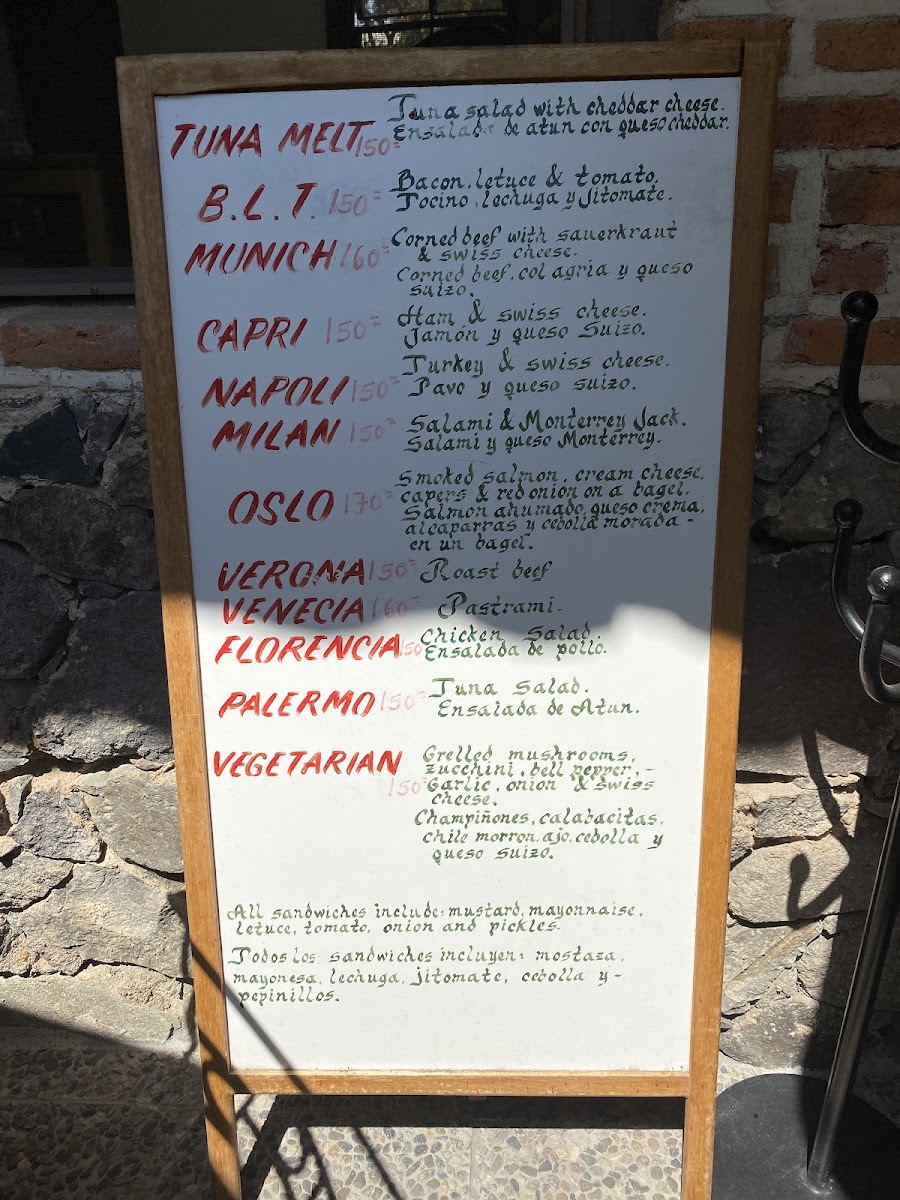 TUNA MELT 150=
Tuna salad with cheddar cheese.
Ensalada de atun con queso cheddar.
B.L.T. 150=
Bacon, letuce & tomato.
Tocino, lechuga y Jitomate.
MUNICH 160=
Corned beef with sauerkraut
& swiss cheese.
Corned beef, col agria y queso
suizo.
CAPRI 150=
Ham & swiss cheese.
Jamón y queso Suizo.
NAPOLI 150=
Turkey & swiss cheese.
Pavo y queso suizo.
MILAN 150=
Salami & Monterrey Jack.
Salami y queso Monterrey.
OSLO 170=
Smoked salmon, cream cheese,
capers & red onion on a bagel.
Salmon ahumado, queso crema,
alcaparras y cebolla morada -
en un bagel.
VERONA 150=
Roast beef
VENECIA 160=
Pastrami.
FLORENCIA 150
Chicken Salad.
Ensalada de pollo.
PALERMO 150=
Tuna Salad.
Ensalada de Atun.
VEGETARIAN
150=
Grelled mushrooms,
zucchini, bell pepper, -
Garlic, onion & swiss
cheese.
Champiñones, calabacitas,
chile morron, ajo, cebolla y
queso suizo.
All sandwiches include: mustard, mayonnaise,
letuce, tomato, onion and pickles.
Todos los sandwiches incluyen: mostaza,
mayonesa, lechuga, jitomate, cebolla y -
pepinillos.